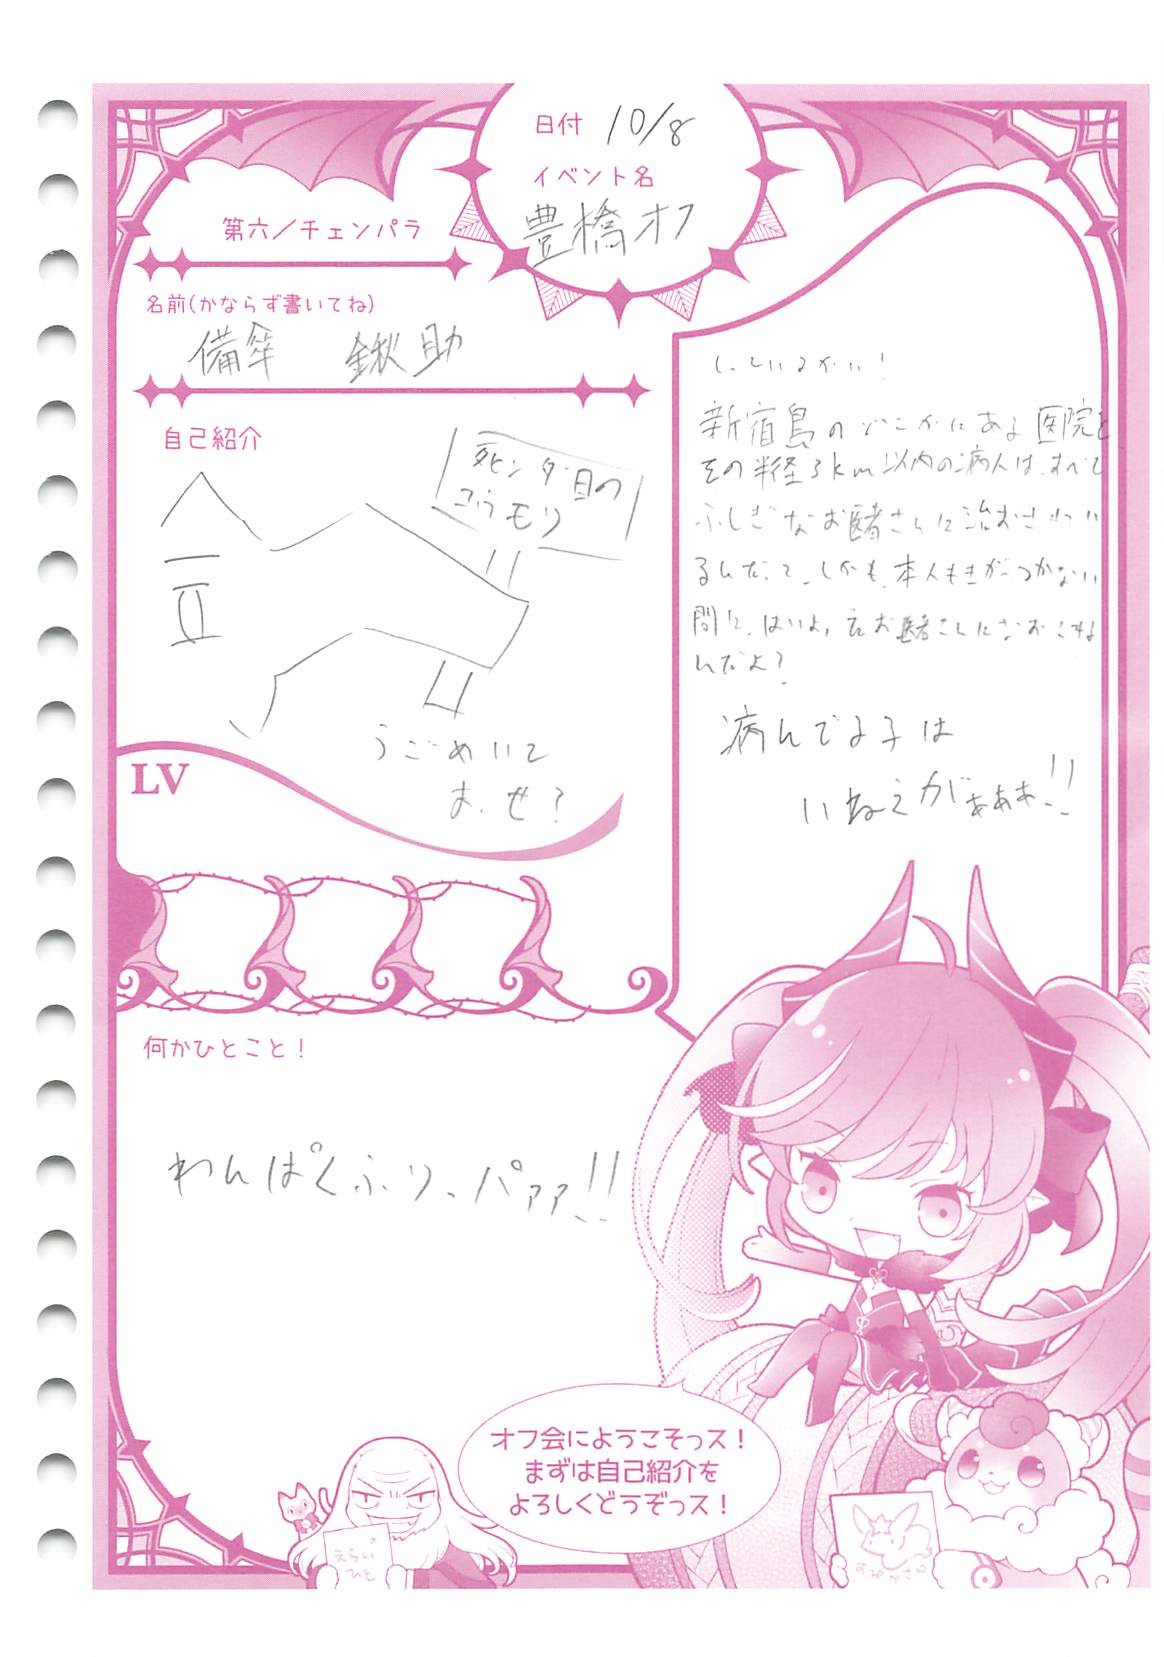 日付 10/8
イベント名
豊橋オフ
第六/チェンパラ
名前(かならず書いてね)
備傘 鍬助
自己紹介
死ンダ目の
コウモリ
うごめいて
まっせ?
LV
しっているかい!
新宿島のどこかにある医院と
その半径3km以内の病人は、すべて
ふしぎなお医者さんに治おされてい
るんだって、しかも、本人もきがつかない
間に、はいよ、
お医者さんになおされる
んだよ?
病んでる子は
いねえがぁああ!!
何かひとこと!
わんぱくふりっパァァ!!
オフ会にようこそっス!
まずは自己紹介を
よろしくどうぞっス!
えらい
ひと